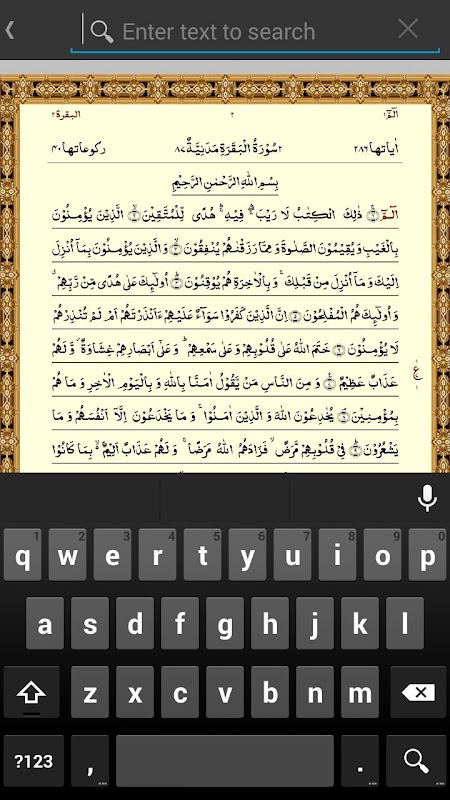 Enter text to search
البقرة ٢
٢
الٓمّٓ ١
اٰیاتها ٢٨٦
٢ سُوْرَةُ الْبَقَرَةِ مَدَنِیَّةٌ ٨٧
رکوعاتها ۴۰
بِسْمِ اللّٰهِ الرَّحْمٰنِ الرَّحِیْمِ
الٓمّٓ ۚ ذٰلِكَ الْكِتٰبُ لَا رَیْبَ ۛ فِیْهِ ۛ هُدًی لِّلْمُتَّقِیْنَ الَّذِیْنَ یُؤْمِنُوْنَ
بِالْغَیْبِ وَیُقِیْمُوْنَ الصَّلٰوةَ وَمِمَّا رَزَقْنٰهُمْ یُنْفِقُوْنَ وَالَّذِیْنَ یُؤْمِنُوْنَ بِمَاۤ اُنْزِلَ
اِلَیْكَ وَمَاۤ اُنْزِلَ مِنْ قَبْلِكَ ۚ وَبِالْاٰخِرَةِ هُمْ یُوْقِنُوْنَ اُولٰٓئِكَ عَلٰی هُدًی مِّنْ رَّبِّهِمْ ۗ
وَاُولٰٓئِكَ هُمُ الْمُفْلِحُوْنَ اِنَّ الَّذِیْنَ كَفَرُوْا سَوَآءٌ عَلَیْهِمْ ءَاَنْذَرْتَهُمْ اَمْ لَمْ تُنْذِرْهُمْ
لَا یُؤْمِنُوْنَ خَتَمَ اللّٰهُ عَلٰی قُلُوْبِهِمْ وَعَلٰی سَمْعِهِمْ ۗ وَعَلٰۤی اَبْصَارِهِمْ غِشَاوَةٌ ۗ وَّلَهُمْ
عَذَابٌ عَظِیْمٌ وَمِنَ النَّاسِ مَنْ یَّقُوْلُ اٰمَنَّا بِاللّٰهِ وَبِالْیَوْمِ الْاٰخِرِ وَمَا هُمْ
بِمُؤْمِنِیْنَ یُخٰدِعُوْنَ اللّٰهَ وَالَّذِیْنَ اٰمَنُوْا ۚ وَمَا یَخْدَعُوْنَ اِلَّاۤ اَنْفُسَهُمْ وَمَا
یَشْعُرُوْنَ فِیْ قُلُوْبِهِمْ مَّرَضٌ ۙ فَزَادَهُمُ اللّٰهُ مَرَضًا ۚ وَلَهُمْ عَذَابٌ اَلِیْمٌ ۙ بِمَا كَانُوْا
1 2 3 4 5 6 7 8 9 0
q w e r t y u i o p
a s d f g h j k l
z x c v b n m
?123 , .